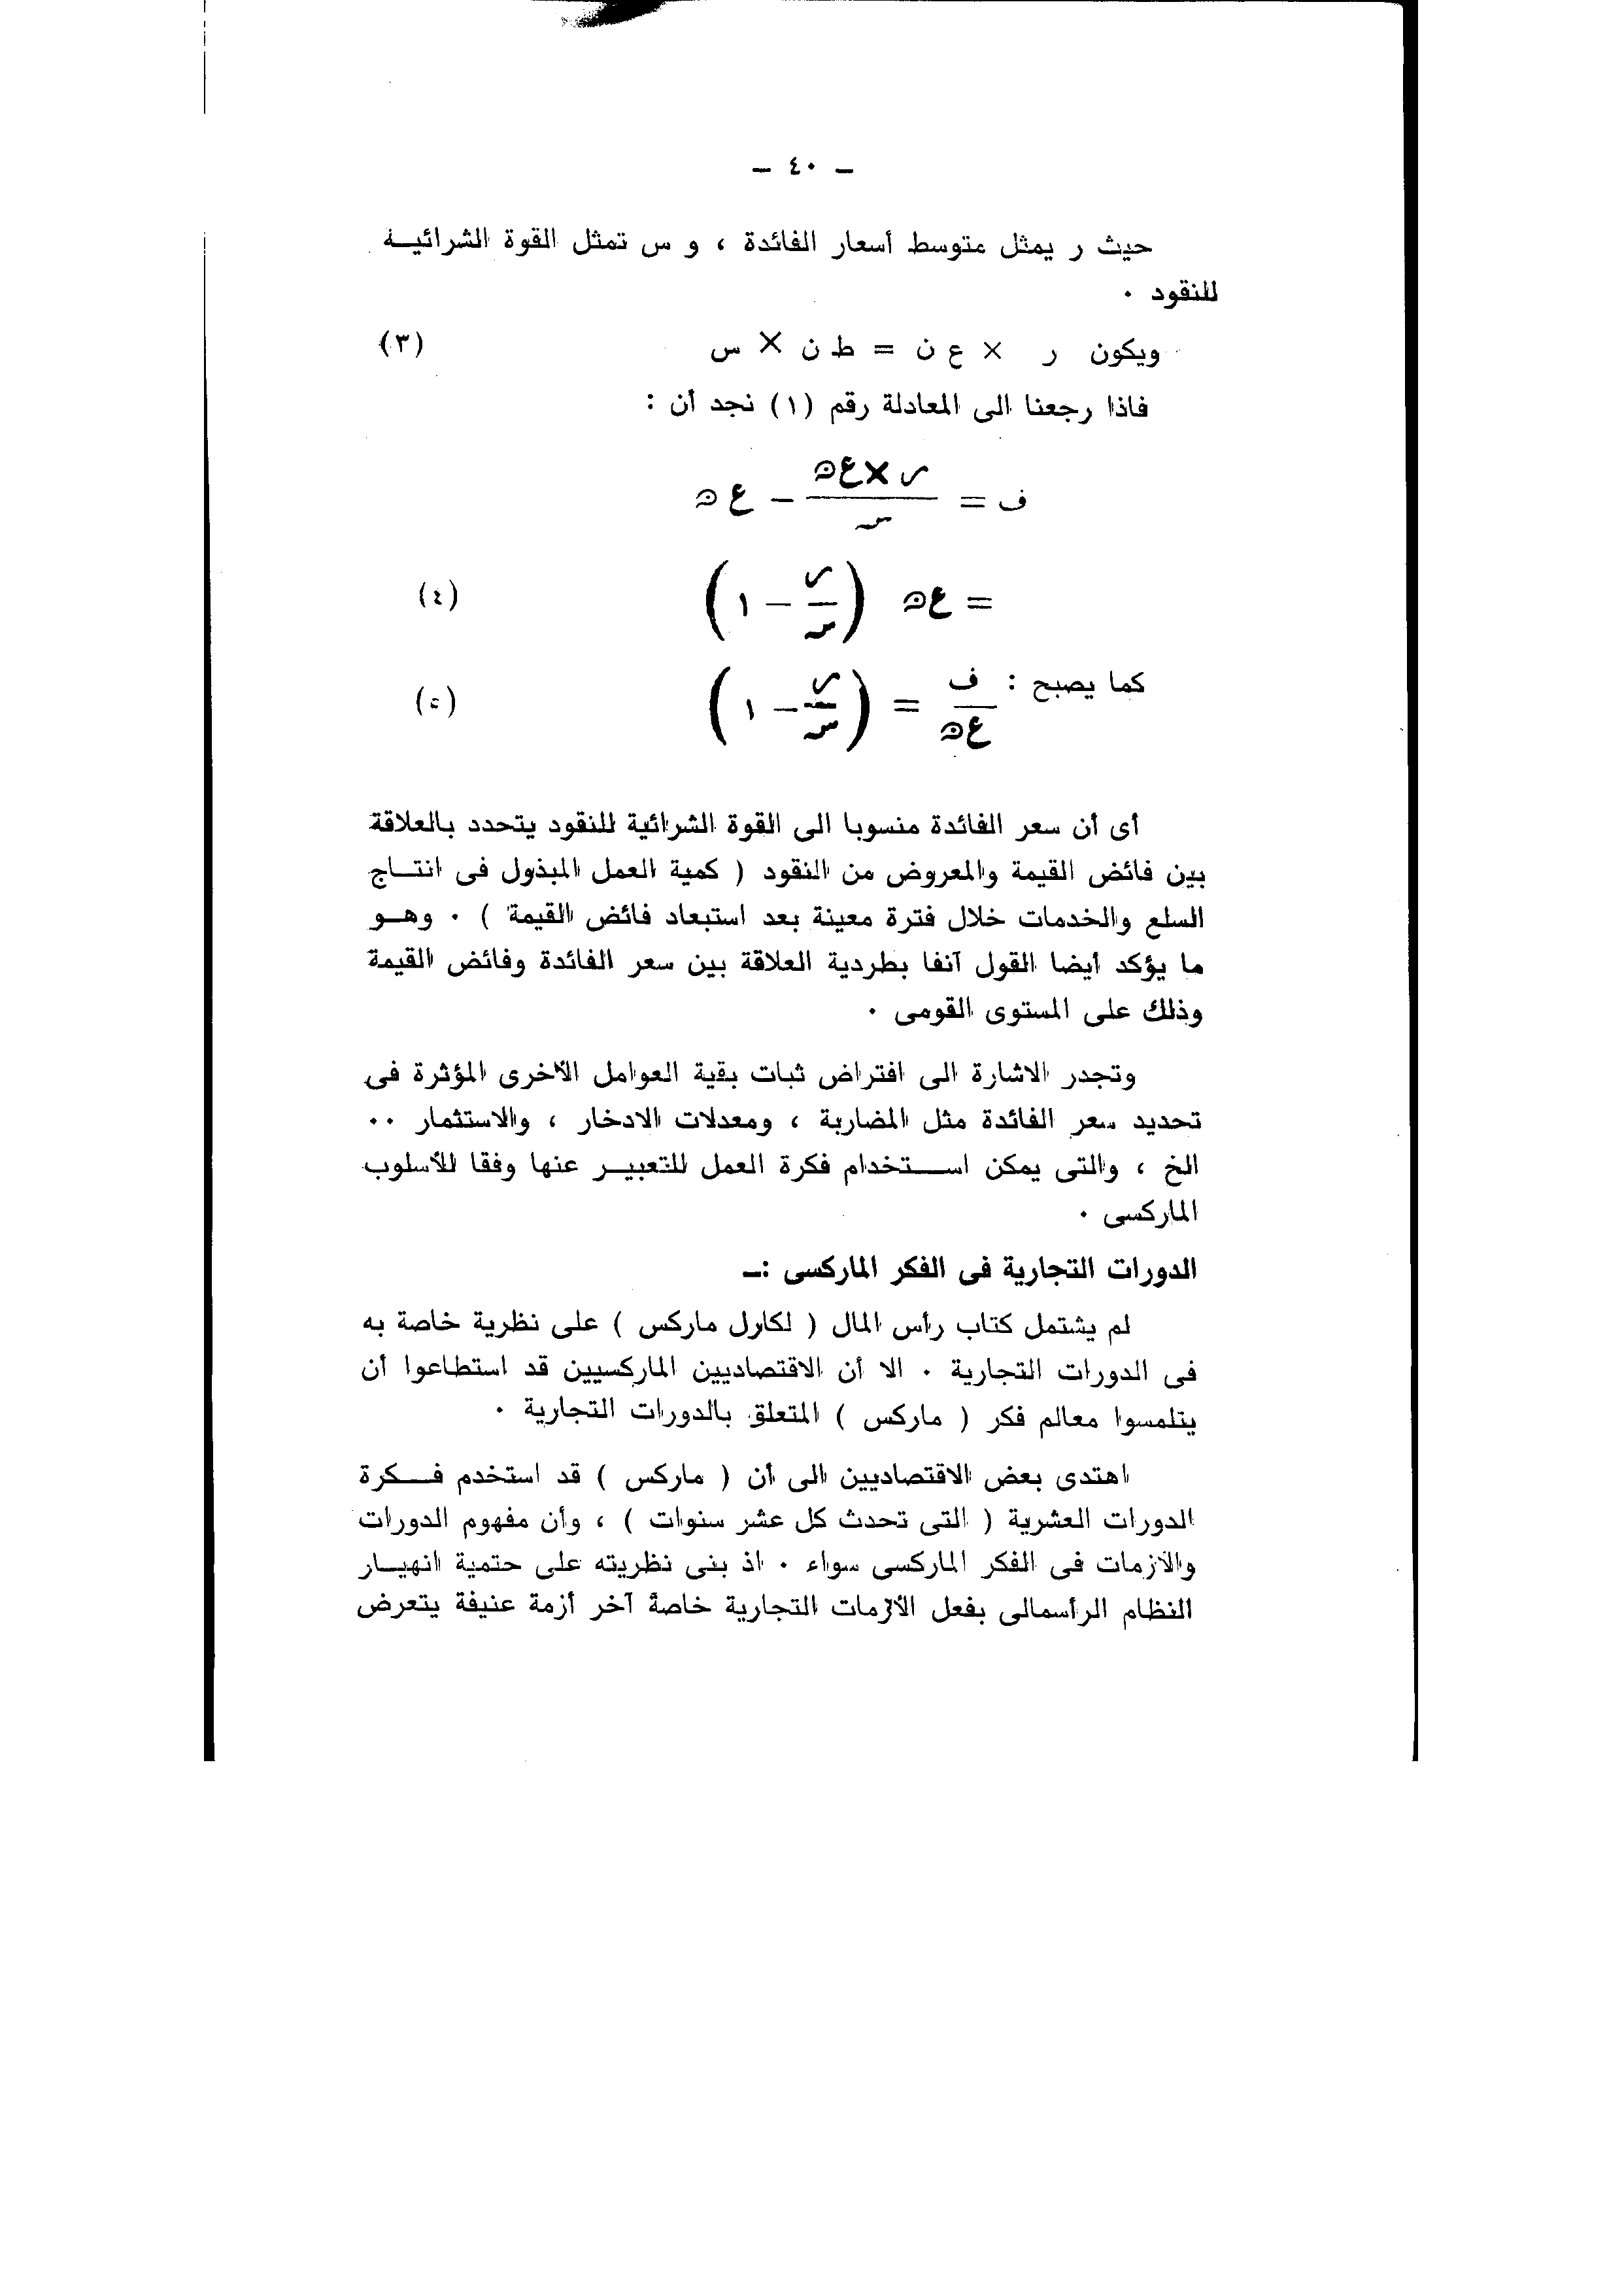 ـ ٤٠ ـ
حيث ر يمثل متوسط أسعار الفائدة ، و س تمثل القوة الشرائيــة
للنقود ٠
ويكون ر × ع ن = ط ن × س (٣)
فاذا رجعنا الى المعادلة رقم (١) نجد أن :
ف = (ر × ع ن) / س − ع ن
= ع ن ( ر / س − ١ ) (٤)
كما يصبح : ف / ع ن = ( ر / س − ١ ) (٥)
أى أن سعر الفائدة منسوبا الى القوة الشرائية للنقود يتحدد بالعلاقة
بين فائض القيمة والمعروض من النقود ( كمية العمل المبذول فى انتــاج
السلع والخدمات خلال فترة معينة بعد استبعاد فائض القيمة ) ٠ وهــو
ما يؤكد أيضا القول آنفا بطردية العلاقة بين سعر الفائدة وفائض القيمة
وذلك على المستوى القومى ٠
وتجدر الاشارة الى افتراض ثبات بقية العوامل الأخرى المؤثرة فى
تحديد سعر الفائدة مثل المضاربة ، ومعدلات الادخار ، والاستثمار ٠٠
الخ ، والتى يمكن اســـتخدام فكرة العمل للتعبيــر عنها وفقا للأسلوب
الماركسى ٠
الدورات التجارية فى الفكر الماركسى :ـ
لم يشتمل كتاب رأس المال ( لكارل ماركس ) على نظرية خاصة به
فى الدورات التجارية ٠ الا أن الاقتصاديين الماركسيين قد استطاعوا أن
يتلمسوا معالم فكر ( ماركس ) المتعلق بالدورات التجارية ٠
اهتدى بعض الاقتصاديين الى أن ( ماركس ) قد استخدم فــكرة
الدورات العشرية ( التى تحدث كل عشر سنوات ) ، وأن مفهوم الدورات
والأزمات فى الفكر الماركسى سواء ٠ اذ بنى نظريته على حتمية انهيــار
النظام الرأسمالى بفعل الأزمات التجارية خاصة آخر أزمة عنيفة يتعرض